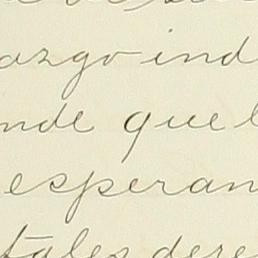 azgo ind
nde que l
esperan
tales dere